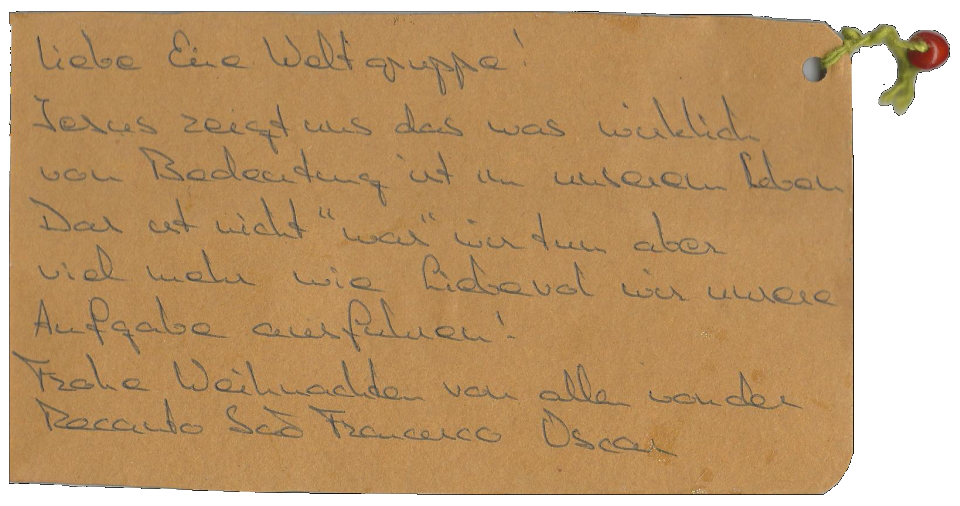 Liebe Eine Weltgruppe!
Jesus zeigt uns das was wirklich
von Bedeutung ist in unserem Leben
Das ist nicht "was" wir tun aber
viel mehr wie Liebevol wir unsere
Aufgabe ausfuhren!
Frohe Weihnachten von allen von der
Recanto Saõ Francesco Oscar